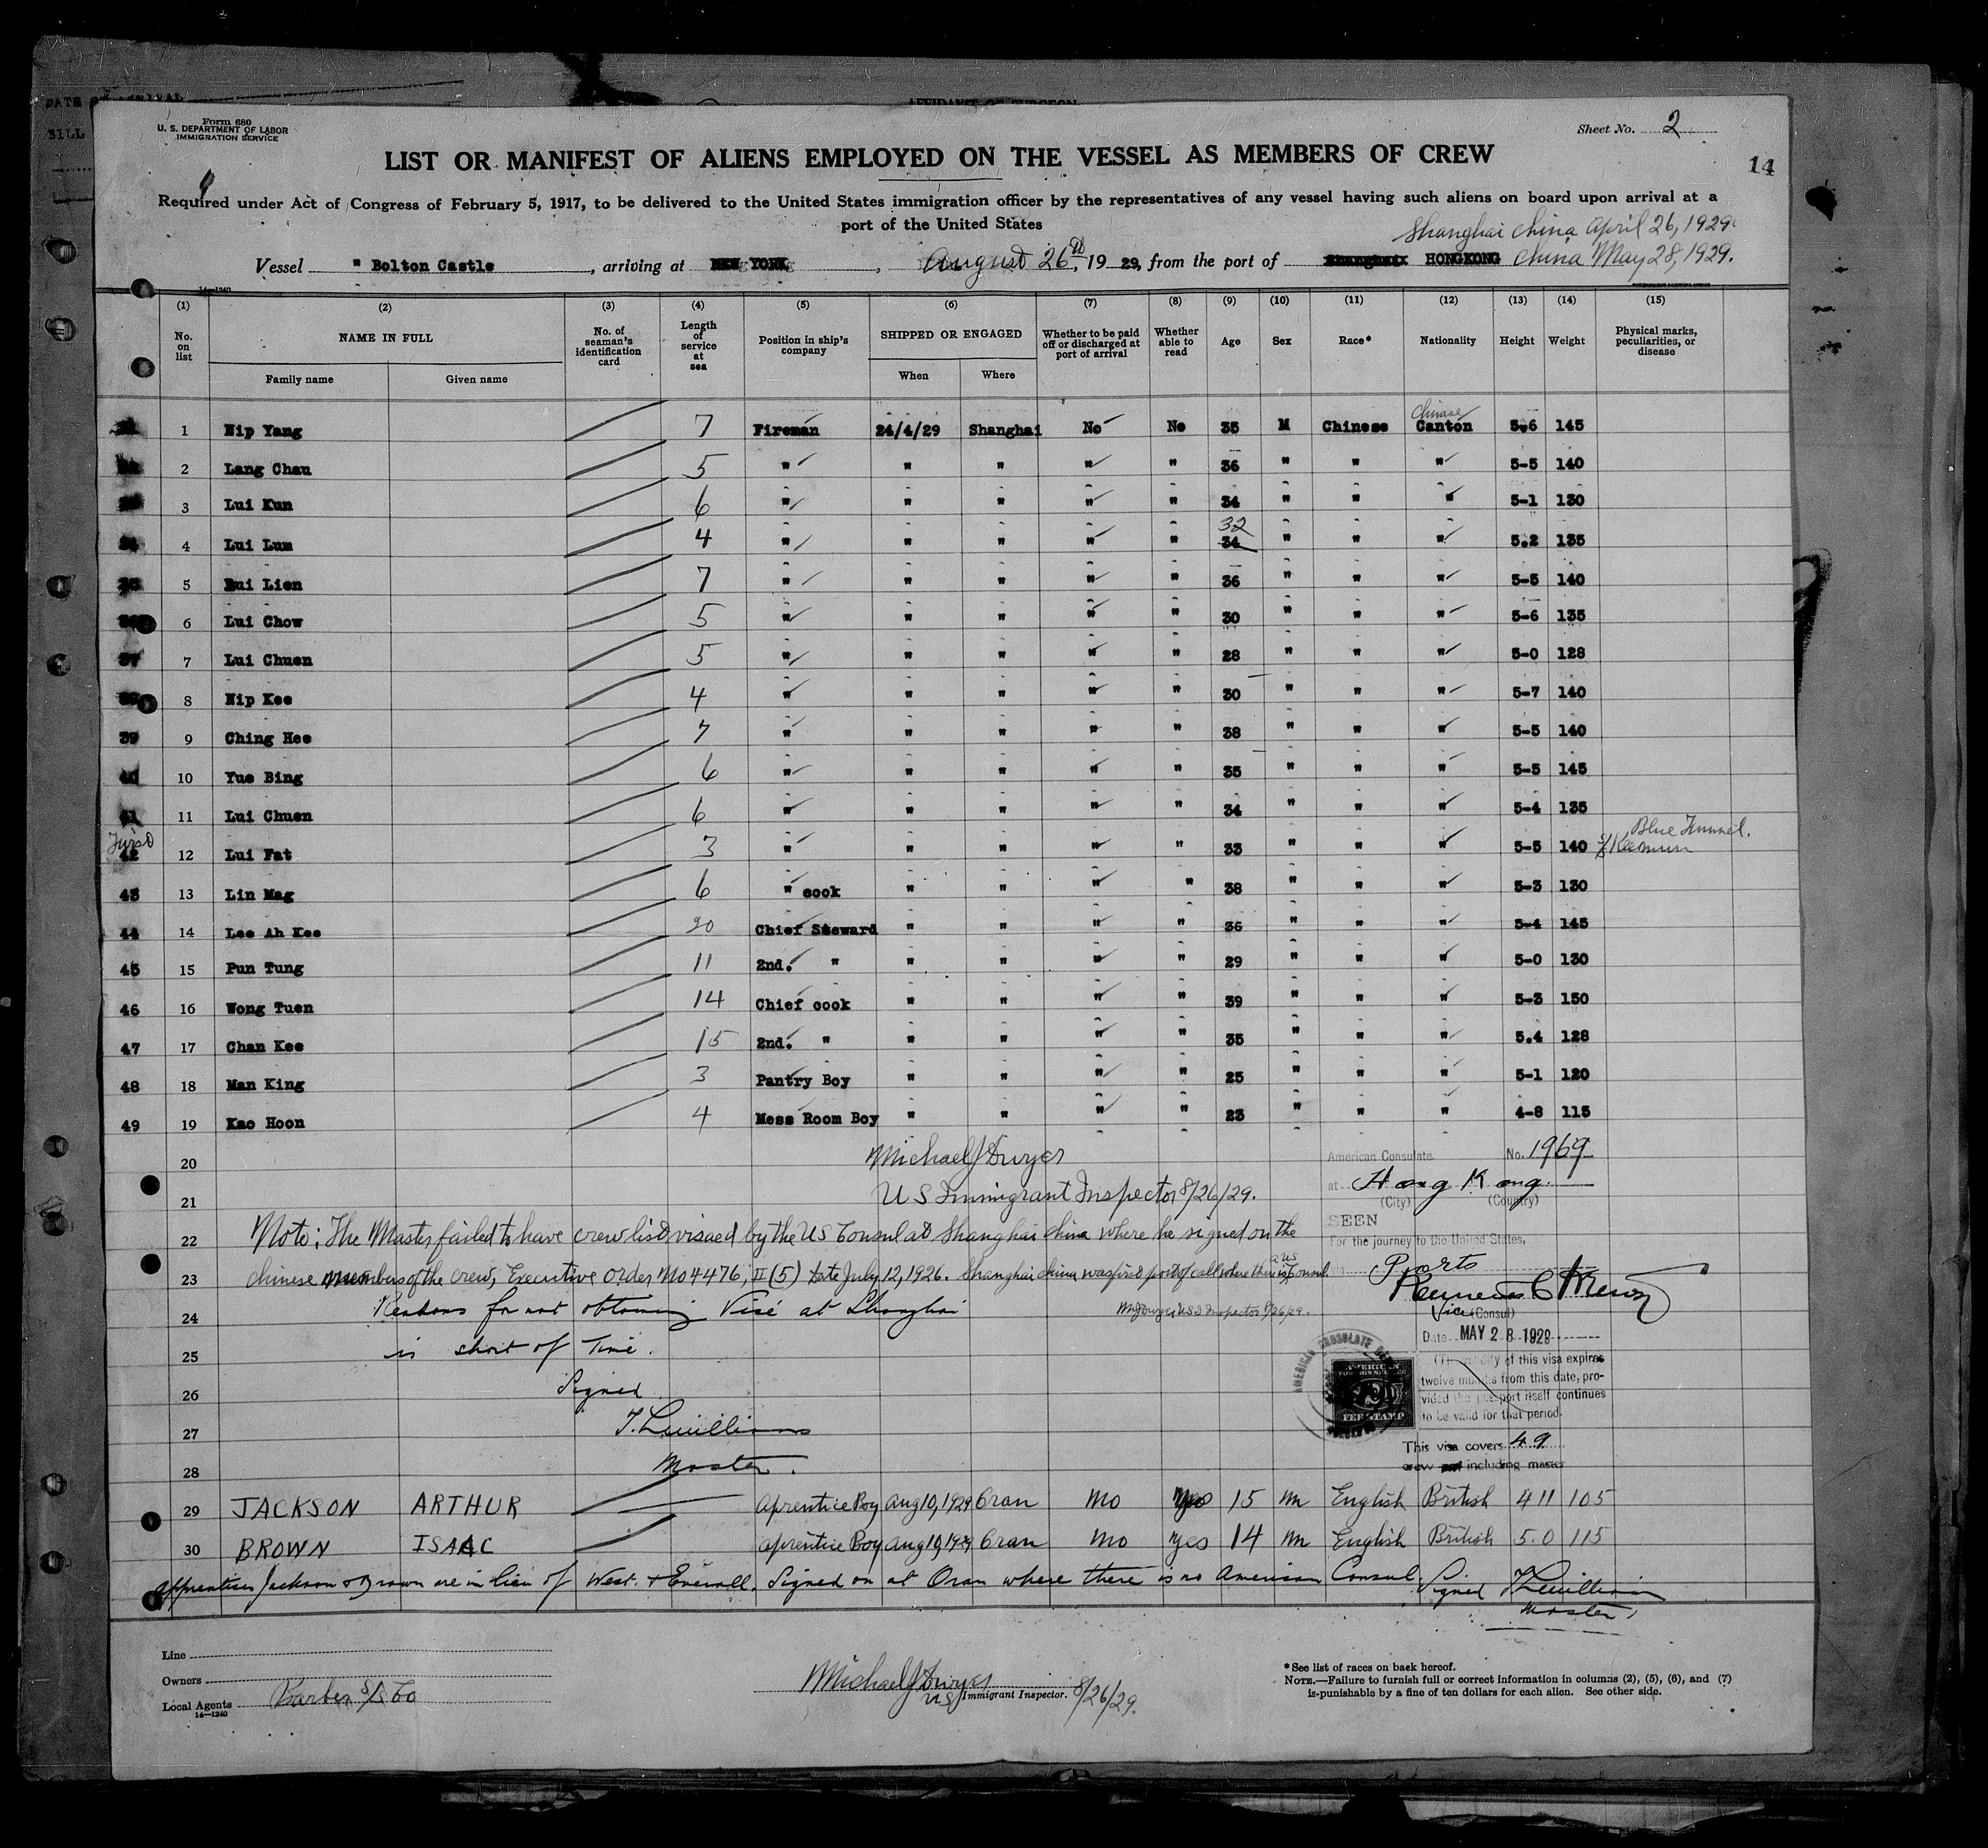 Form 680
U. S. DEPARTMENT OF LABOR
IMMIGRATION SERVICE
Sheet No. 2
14
LIST OR MANIFEST OF ALIENS EMPLOYED ON THE VESSEL AS MEMBERS OF CREW
Required under Act of Congress of February 5, 1917, to be delivered to the United States immigration officer by the representatives of any vessel having such aliens on board upon arrival at a
port of the United States
Shanghai China April 26, 1929.
Vessel " Bolton Castle , arriving at NEW YORK , August 26th, 19 29, from the port of Shanghai HONGKONG China May 28, 1929.
14—1240
(1) (2) (3) (4) (5) (6) (7) (8) (9) (10) (11) (12) (13) (14) (15)
No. on list NAME IN FULL No. of seaman's identification card Length of service at sea Position in ship's company SHIPPED OR ENGAGED Whether to be paid off or discharged at port of arrival Whether able to read Age Sex Race* Nationality Height Weight Physical marks, peculiarities, or disease
Family name Given name When Where
Chinese
1 Nip Yang 7 Fireman 24/4/29 Shanghai No No 35 M Chinese Canton 5.6 145
2 Lang Chau 5 " " " " " 36 " " " 5-5 140
3 Lui Kun 6 " " " " " 34 " " " 5-1 130
32
4 Lui Lum 4 " " " " " 34 " " " 5.2 135
5 Lui Lien 7 " " " " " 36 " " " 5-5 140
6 Lui Chow 5 " " " " " 30 " " " 5-6 135
37 7 Lui Chuen 5 " " " " " 28 " " " 5-0 128
8 Nip Kee 4 " " " " " 30 " " " 5-7 140
39 9 Ching Hee 7 " " " " " 38 " " " 5-5 140
40 10 Yue Bing 6 " " " " " 35 " " " 5-5 145
41 11 Lui Chuen 6 " " " " " 34 " " " 5-4 135
First Blue Funnel.
42 12 Lui Fat 3 " " " " " 33 " " " 5-5 140
43 13 Lin Mag 6 " cook " " " " 38 " " " 5-3 130
44 14 Lee Ah Kee 20 Chief Steward " " " " 36 " " " 5-4 145
45 15 Pun Tung 11 2nd. " " " " " 29 " " " 5-0 130
46 16 Wong Tuen 14 Chief cook " " " " 39 " " " 5-3 150
47 17 Chan Kee 15 2nd. " " " " " 35 " " " 5.4 128
48 18 Man King 3 Pantry Boy " " " " 25 " " " 5-1 120
49 19 Kao Hoon 4 Mess Room Boy " " " " 23 " " " 4-8 115
20 Michael J Dwyer American Consulate. No. 1969
21 U S Immigrant Inspector 8/26/29. at Hong Kong.
(City) (Country)
SEEN
22 Note: The Master failed to have crew list visaed by the US Consul at Shanghai China where he signed on the
For the journey to the United States,
23 Chinese members of the crew, Executive Order No 4476, II (5) date July 12, 1926. Shanghai China was first port of call where there is a US Consul.
Ports
24 Reasons for not obtaining Visé at Shanghai
MJDwyer US I Inspector 8/26/29.
Vice (Consul)
25 is short of Time.
Date MAY 28 1929
(The validity of this visa expires
twelve months from this date, pro-
vided the passport itself continues
to be valid for that period.
AMERICAN CONSULATE
AMERICAN
FEE STAMP
26 Signed
27 T. Lwilliams
28 Master.
This visa covers 49
crew including master
29 JACKSON ARTHUR Aprentice Boy Aug 10, 1929 Oran No Yes 15 M English British 4 11 105
30 BROWN ISAAC Aprentice Boy Aug 10, 1929 Oran No Yes 14 M English British 5.0 115
Apprentices Jackson & Brown are in lieu of West. & Everall. Signed on at Oran where there is no American Consul. Signed T Lwilliams
Master.
Line
Owners
Local Agents Barber S/S Co
14—1240
Michael J Dwyer
US Immigrant Inspector. 8/26/29.
*See list of races on back hereof.
NOTE.—Failure to furnish full or correct information in columns (2), (5), (6), and (7)
is punishable by a fine of ten dollars for each alien. See other side.